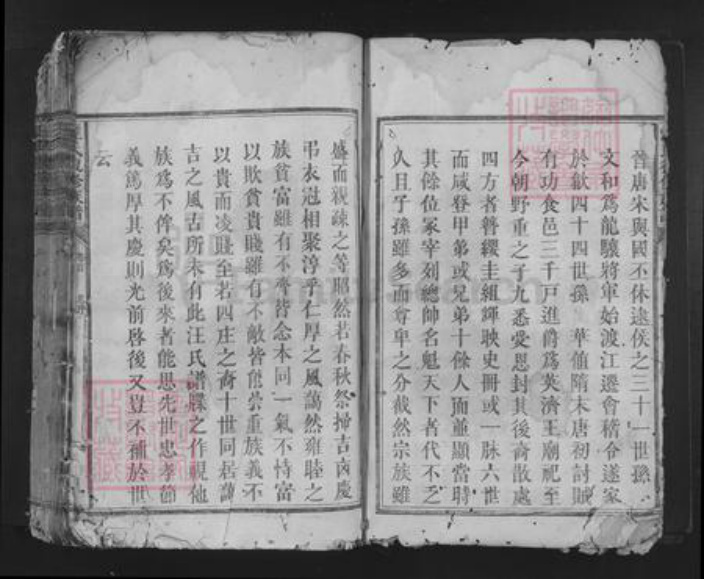 晉唐宋與國丕休逮侯之三十一世孫
文和爲龍驤將軍始渡江遷會稽令遂家
於歙四十四世孫 華値隋末唐初討賊
有功食邑三千戸進爵爲英濟王廟祀至
今朝野重之子九悉受恩封其後裔散處
四方者簪纓圭組輝映史冊或一脉六世
而咸登甲第或兄弟十餘人而並顯當時
其餘位冢宰列總帥名魁天下者代不乏
人且子孫雖多而尊卑之分截然宗族雖
盛而親疎之等照然若春秋祭掃吉凶慶
弔衣冠相聚淳乎仁厚之風藹然雍睦之
族貧富雖有不齊皆念本同一氣不恃富
以欺貧貴賤雖有不敵皆能崇重族義不
以貴而凌賤至若四庄之裔十世同居藹
吉之風古所未有此汪氏譜牒之作視他
族爲不侔矣爲後來者能思先世忠孝節
義篤厚其慶則光前啓後又豈不補於世
云